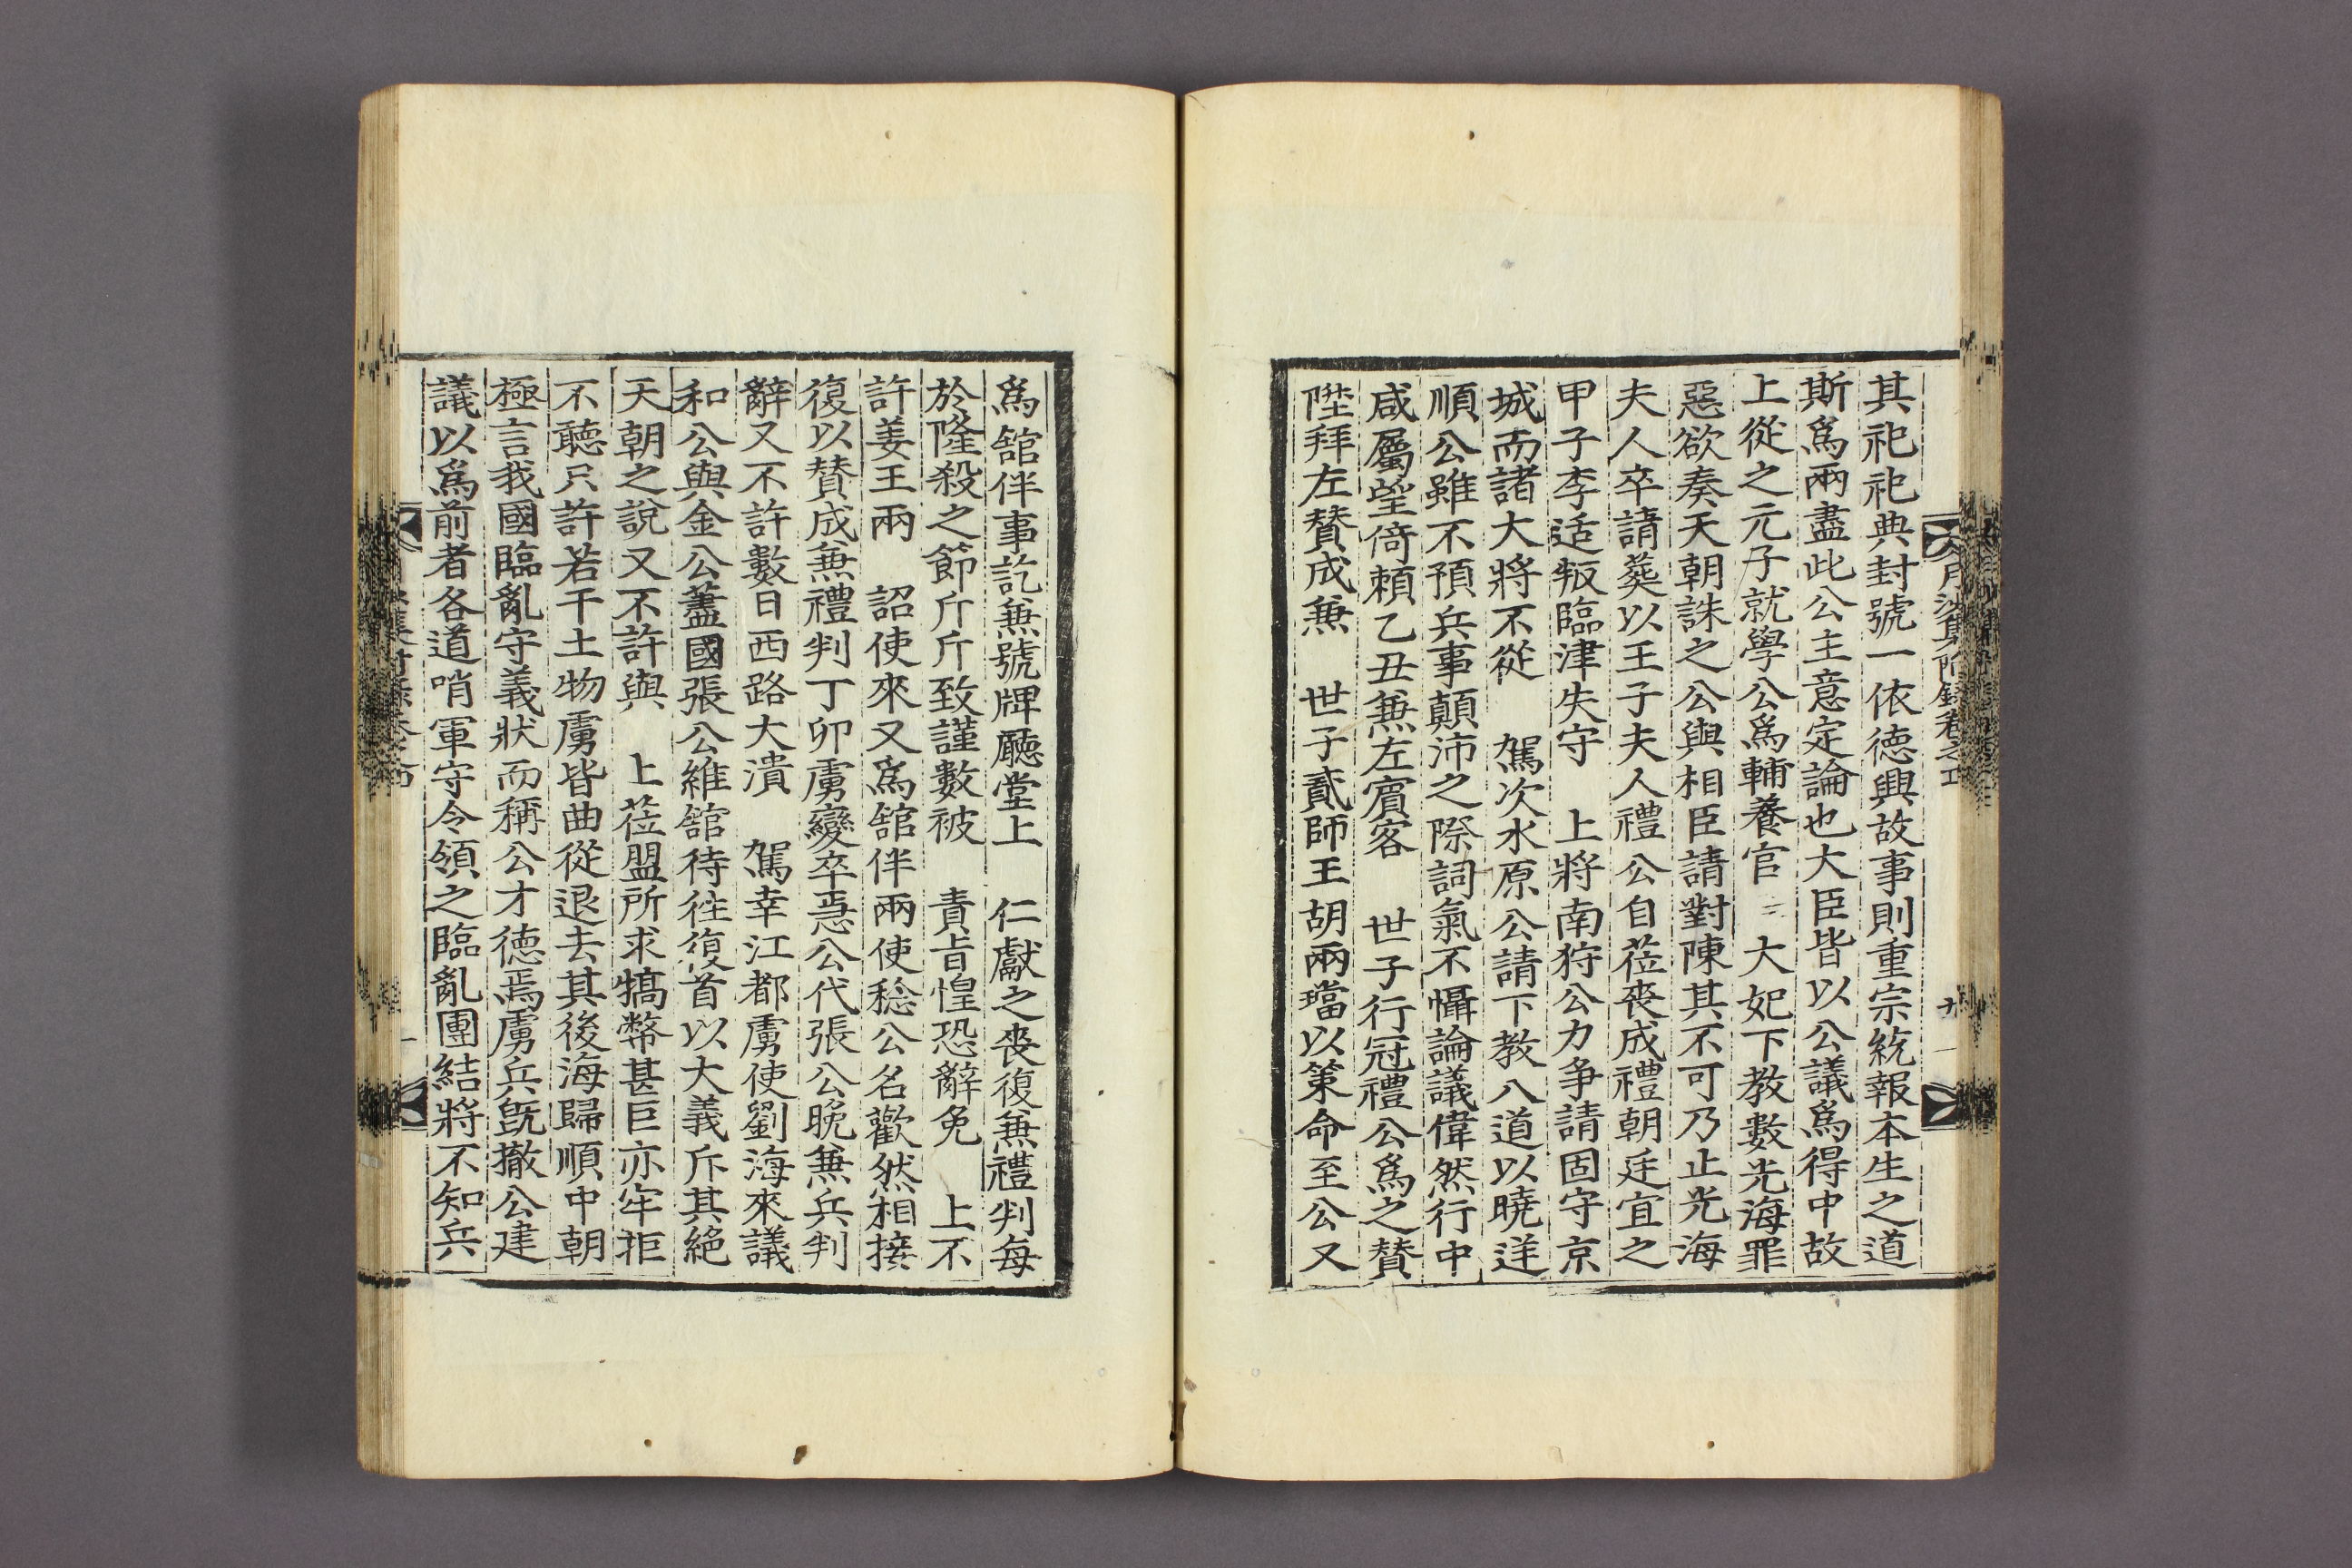 月沙集附錄卷之五
其祀祀典封號一依德興故事則重宗統報本生之道
斯爲兩盡此公主意定論也大臣皆以公議爲得中故
上從之元子就學公爲輔養官 大妃下教數光海罪
惡欲奏天朝誅之公與相臣請對陳其不可乃止光海
夫人卒請葬以王子夫人禮公自莅喪成禮朝廷宜之
甲子李适叛臨津失守 上將南狩公力爭請固守京
城而諸大將不從 駕次水原公請下教八道以曉逆
順公雖不預兵事顚沛之際詞氣不懾論議偉然行中
咸屬望倚賴乙丑兼左賓客 世子行冠禮公爲之賛
陞拜左賛成兼 世子貳師王胡兩璫以策命至公又
爲舘伴事訖兼號牌廳堂上 仁獻之喪復兼禮判每
於隆殺之節斤斤致謹數被 責旨惶恐辭免 上不
許姜王兩 詔使來又爲舘伴兩使稔公名歡然相接
復以賛成兼禮判丁卯虜變卒急公代張公晩兼兵判
辭又不許數日西路大潰 駕幸江都虜使劉海來議
和公與金公藎國張公維舘待徃復首以大義斥其絕
天朝之說又不許與 上莅盟所求犒幣甚巨亦牢拒
不聽只許若干土物虜皆曲從退去其後海歸順中朝
極言我國臨亂守義狀而稱公才德焉虜兵旣撤公建
議以爲前者各道哨軍守令領之臨亂團結將不知兵